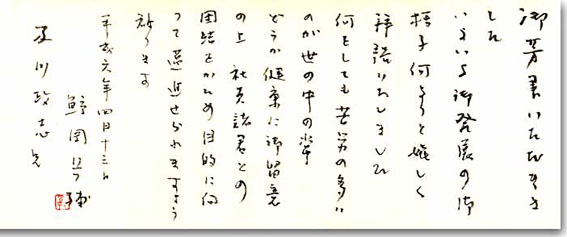 御芳書いただきま
した
いよいよ御発展の御
様子何よりと嬉しく
拝読いたしました
何をしても苦労の多い
のが世の中の常
どうか健康に御留意
の上 社員諸君との
団結をかため目的に向
って邁進せられますよう
祈ります
平成六年四月十三日
鯨岡兵輔
及川政志兄